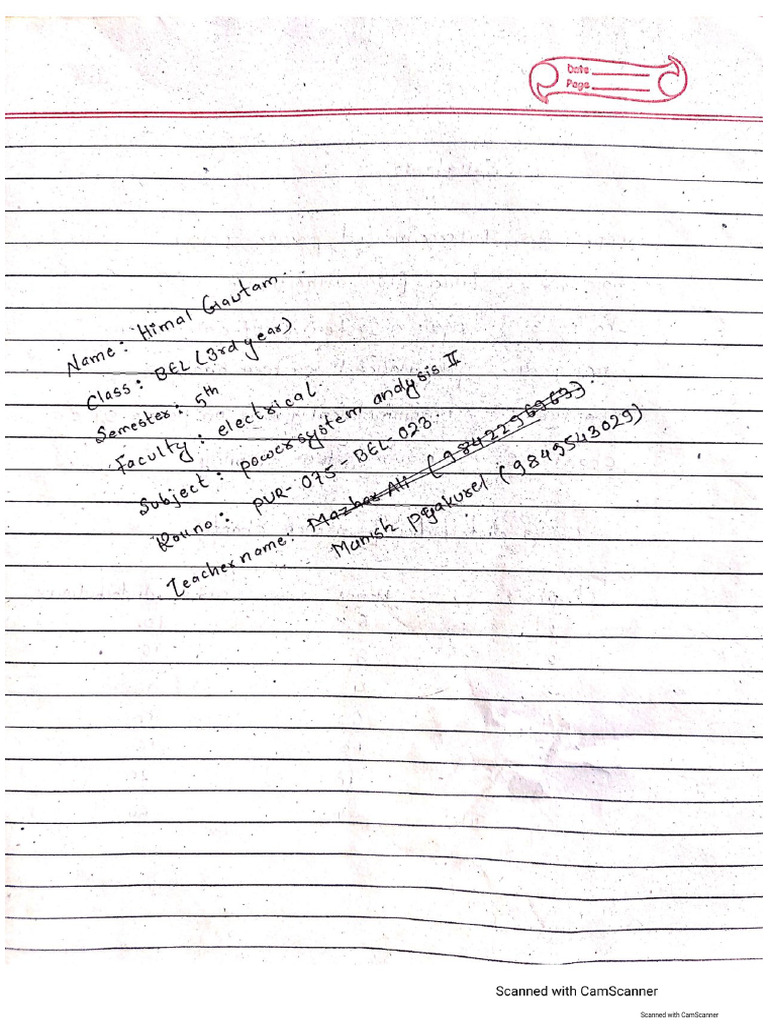 Date
Page
Name: Himal Gautam.
Class: BEL (3rd year)
Semester: 5th
Faculty: electrical.
Subject: power system analysis II
Rollno: PUR-075-BEL-023.
Teacher name: Mazhar Ali (9842296969).
Manish Pyakurel (9849543029)
Scanned with CamScanner
Scanned with CamScanner